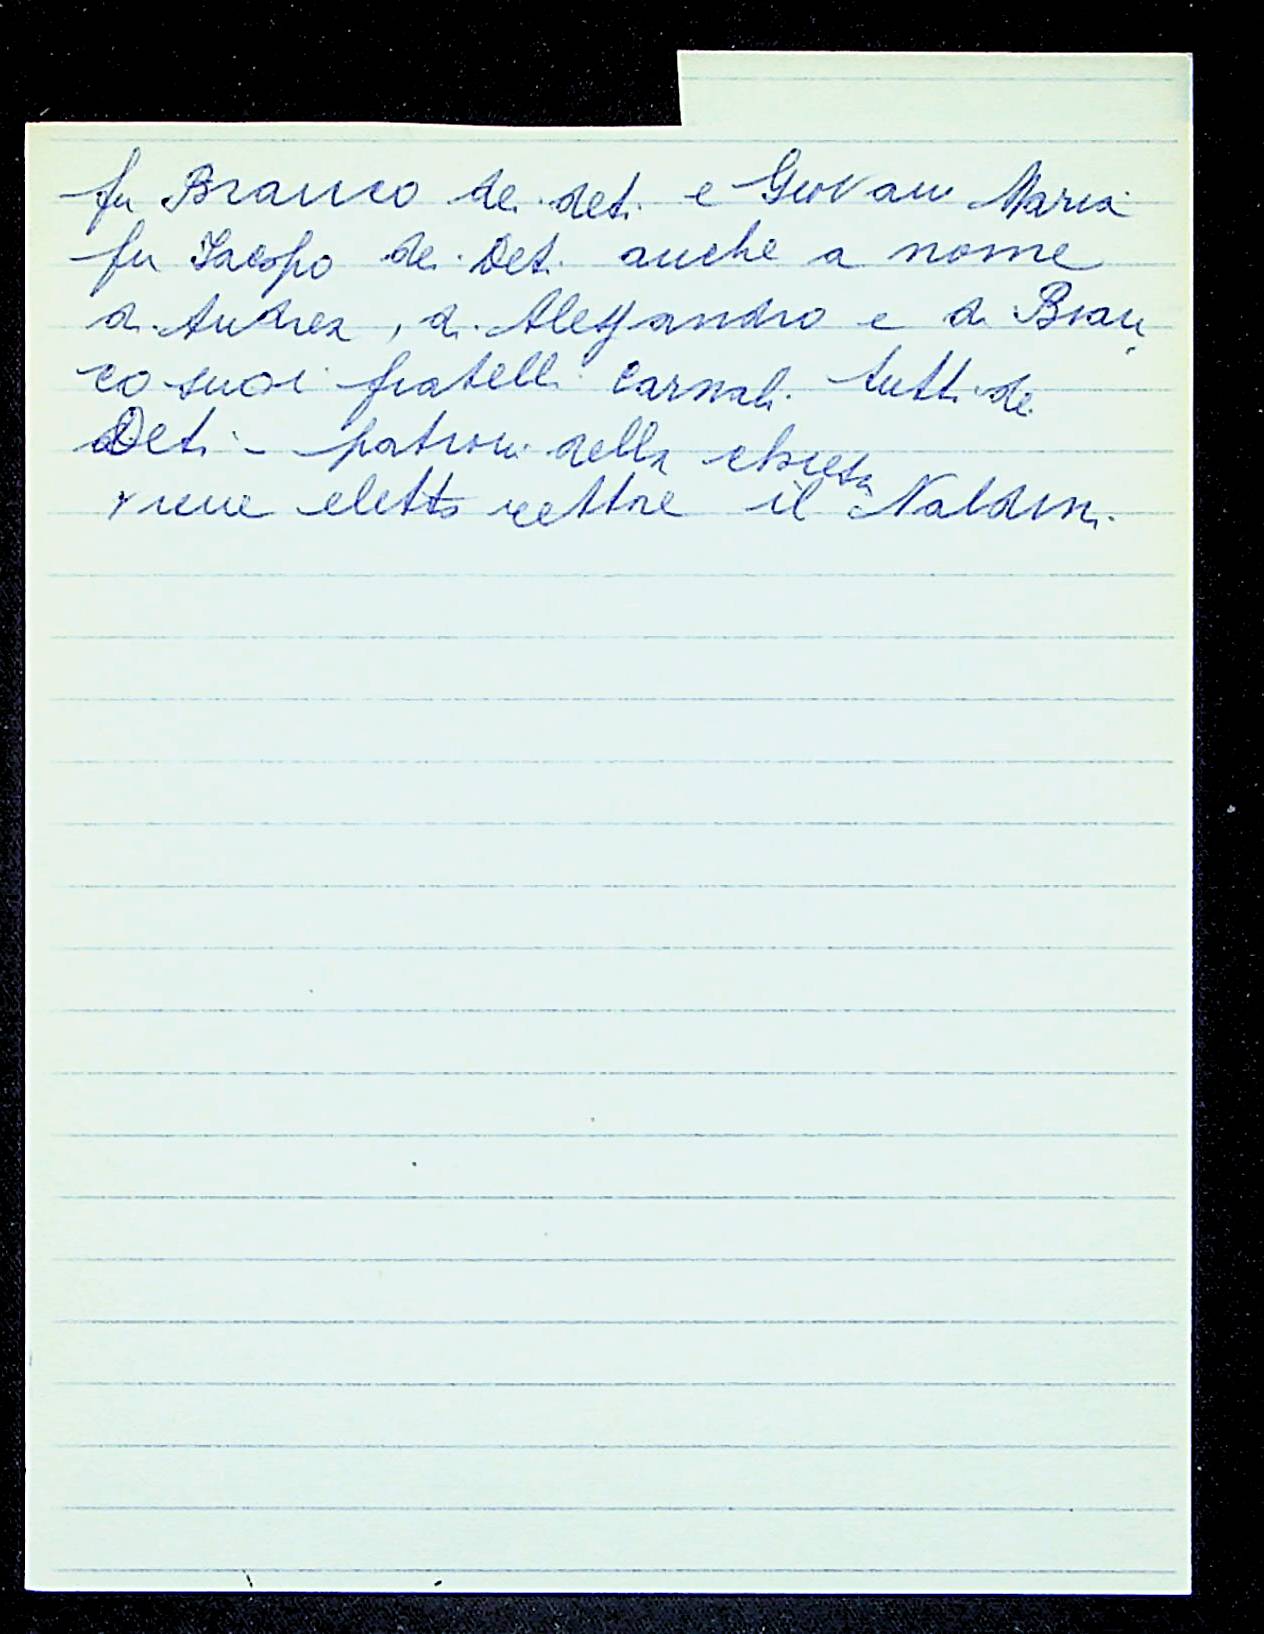 fu Branco dei deti e Giovan Maria
fu Iacopo dei Deti anche a nome
di Andrea, di Alessandro e di Bran
co suoi fratelli carnali tutti dei
Deti - patroni della chiesa
viene eletto rettore il Naldini